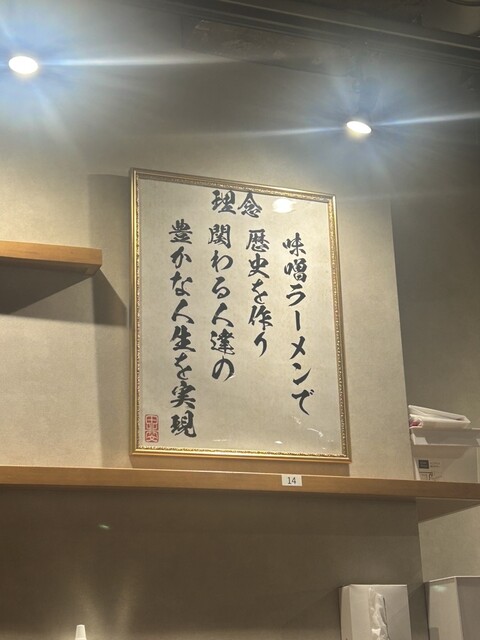 理念
味噌ラーメンで
歴史を作り
関わる人達の
豊かな人生を実現
14